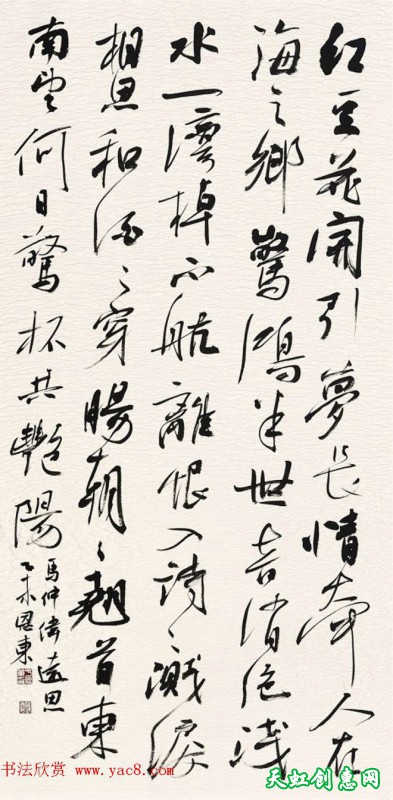 红豆花開引夢長情牽人在
海之鄉驚鴻半世音消绝浅
水一灣棹不航離恨入詩々濺淚
相思和酒々穿腸朝々翹首東
南望何日擎杯共艷陽
馬仲偉遠思
乙未恩東
书法欣赏 www.yac8.com
天虹创意网